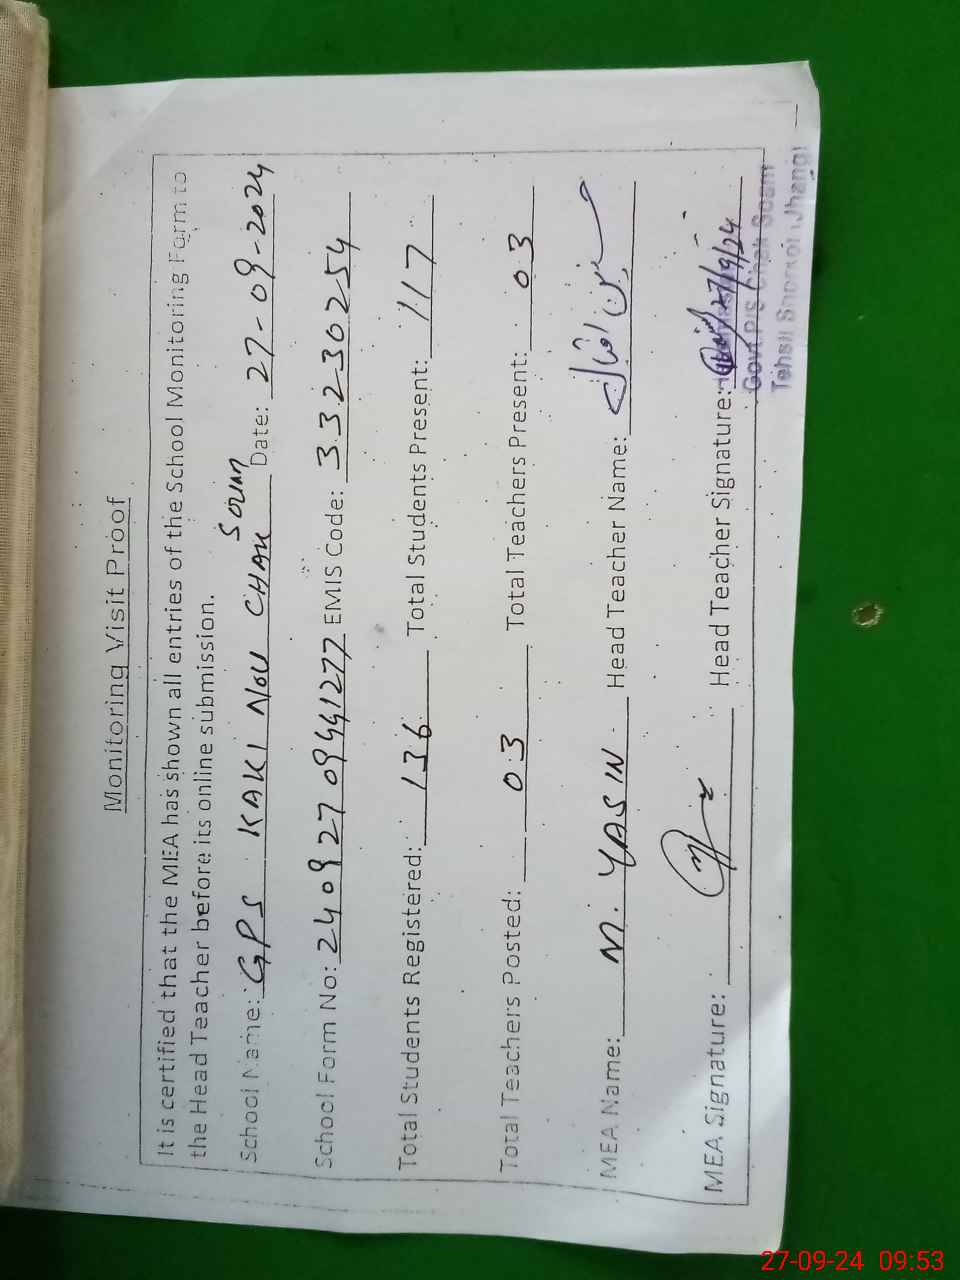 Monitoring Visit Proof
It is certified that the MEA has shown all entries of the School Monitoring Form to
the Head Teacher before its online submission.
School Name: GPS KAKI NOU CHAK SOUAN Date: 27-09-2024
School Form No: 240927 09441277 EMIS Code: 33230254
Total Students Registered: 136 Total Students Present: 117
Total Teachers Posted: 03 Total Teachers Present: 03
MEA Name: M. YASIN Head Teacher Name:
MEA Signature: Head Teacher Signature: 27/9/24
Govt. P/S Chak
Tehsil Shorkot (Jhang)
27-09-24 09:53